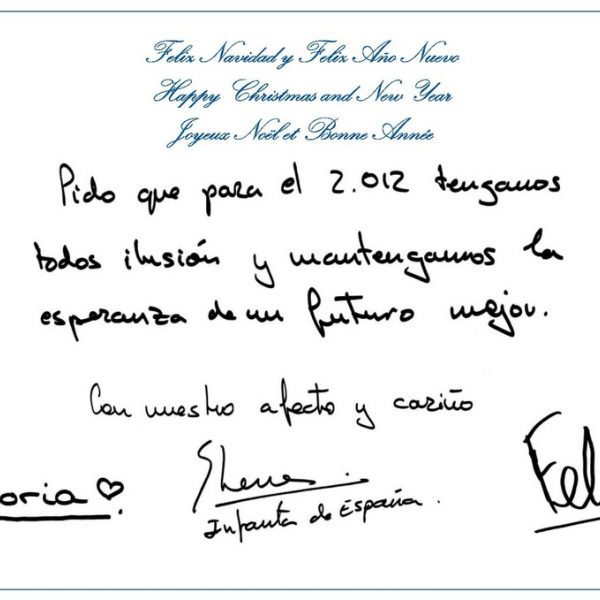 Feliz Navidad y Feliz Año Nuevo
Happy Christmas and New Year
Joyeux Noël et Bonne Année
Pido que para el 2.012 tengamos
todos ilusión y mantengamos la
esperanza de un futuro mejor.
Con nuestro afecto y cariño
oria Elena Fel
Infanta de España.